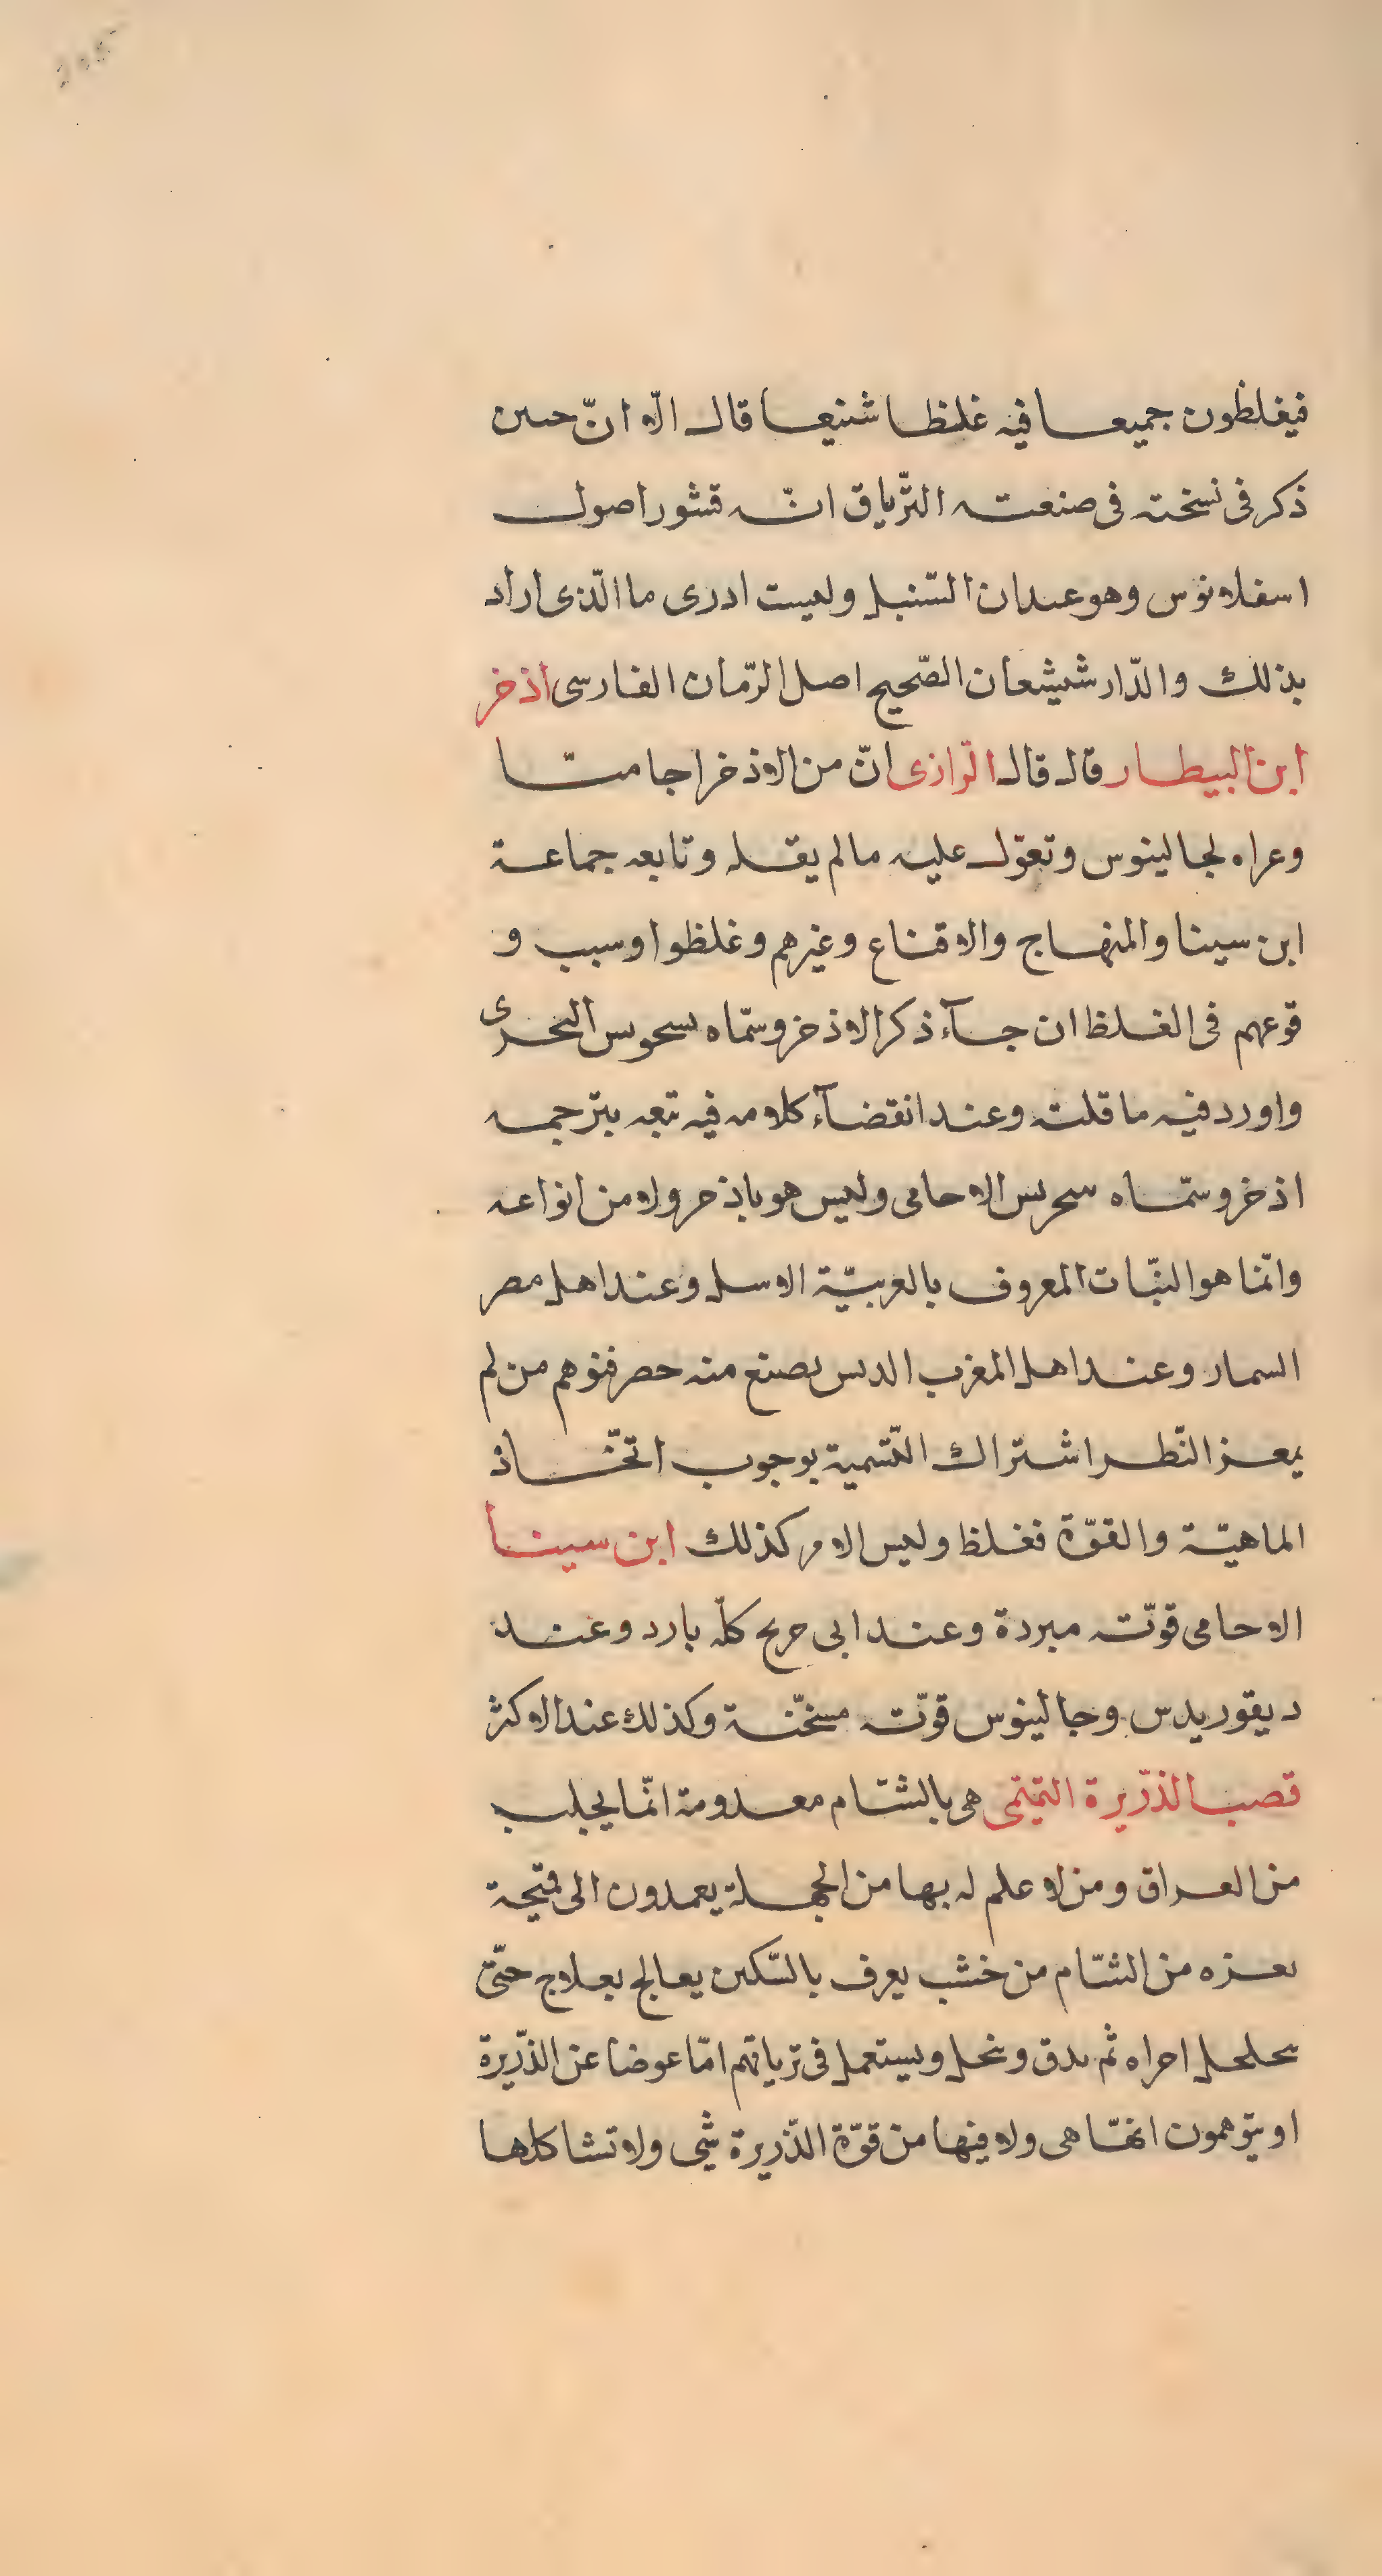 فيغلظون جميعا فيه غلظا شنيعا قال الّا انّ حسن
ذكر فى نسخته فى صنعته الترّياق انّه قشور اصول
اسفلانوس وهو عىدان السّنبل وليست ادرى ما الّذى اراد
بذلك والدّار شيشعان الصّحيح اصل الرّمان الفارسى اذخر
ابن البيطار قال قال الرّازى انّ من الاذخر اجامىّا
وعراه لجالينوس وتعوّل عليه مالم يقله وتابعه جماعة
ابن سينا والمنهاج والاقناع وغيرهم وغلظوا وسبب و
قوعهم فى الغلظ ان جآء ذكر الاذخر وسمّاه سحوس النحرى
واورد فيه ما قلته وعند انقضآء كلامه فيه تبعه بترجمه
اذخر وسمّاه سحرس الاحامى وليس هو باذحر ولا من انواعه
وانّما هو النبّات المعروف بالعربيّة الاسل وعند اهل مصر
السمار وعند اهل المغرب الدىس ىصنع منه حصر فتوهم من لم
يمعز النّظر اشتراك التّسمية بوجوب اتّخاذ
الماهيّة والقوّة فغلظ وليس الامر كذلك ابن سينا
الاحامى قوّته مبردة وعند ابى حرىح كلّه بارد وعند
ديقوريدس وجالينوس قوّته مسخّنة وكذلك عند الاكثر
قصب الذرّيرة التميمى هى بالشّام معدومة انّما يجلب
من العراق ومن لا علم له بها من الجملة يعمدون الى قميحة
ىعزه من الشّام من خشب يعرف بالسّكىں يعالج بعلاج حتّى
ىحلحل احراه ثم ىدق وىىحل ويستعمل فى ترياقهم امّا عوضا عن الذّريرة
او يتوهمون انهّا هى ولا فيها من قوّة الذّريرة شى ولا تشاكلها